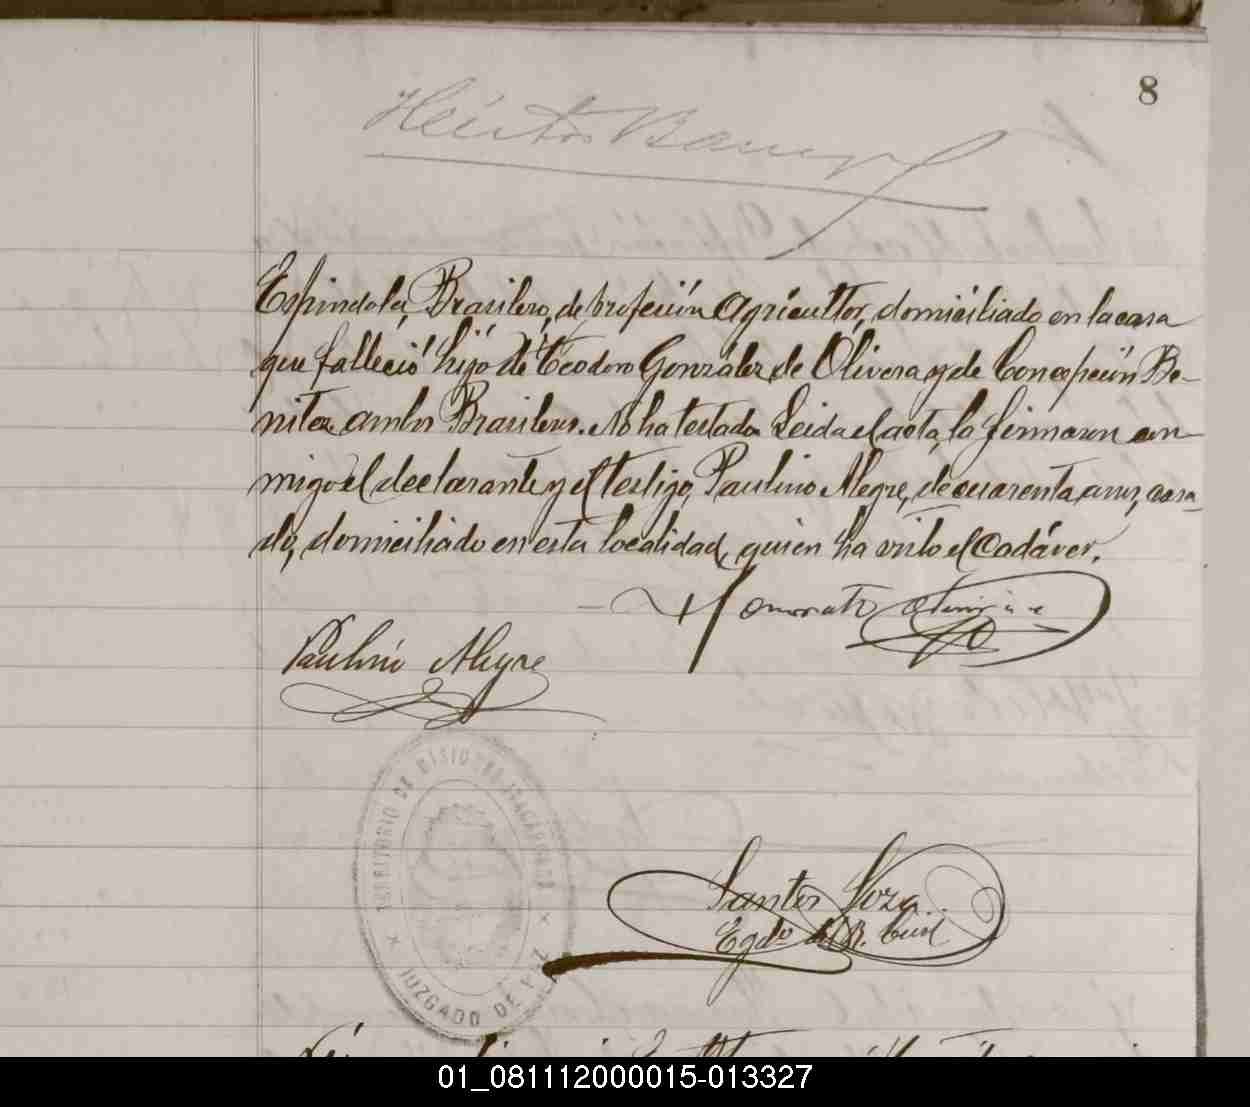 8
Héctor
Espindola, Brasilero, de profesión Agricultor, domiciliado en la casa
que falleció hijo de Teodoro González de Olivera y de Concepción Be-
nitez, ambos Brasileros. No ha testado. Leida el acta, la firmaron con-
migo el declarante y el testigo, Paulino Alegre, de cuarenta años, casa-
do, domiciliado en esta localidad, quien ha visto el Cadáver.
Honorato
Paulino Alegre
TERRITORIO DE MISIONES
JUZGADO DE PAZ
Santos Soza
Egdo del R. Civil
01_081112000015-013327